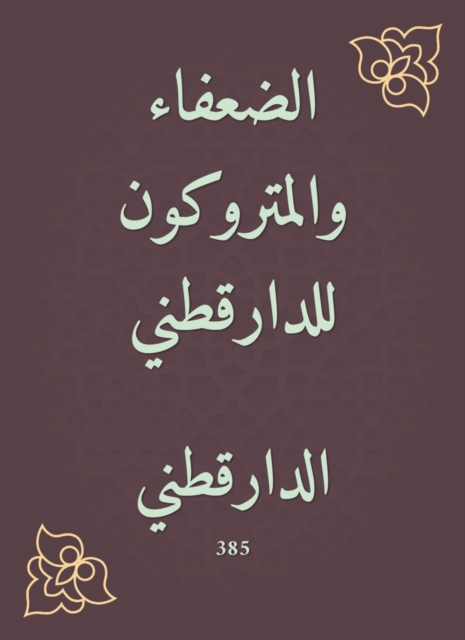 الضعفاء
والمتروكون
للدارقطني
الدارقطني
385